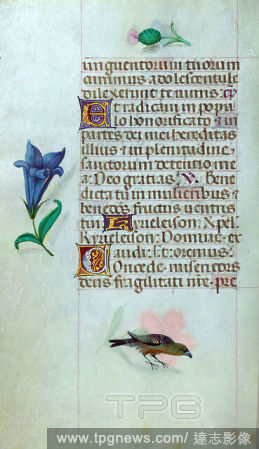 unguentorum tuorum
animus adolescentule
dilexerunt te nimis: cp
Et radicavi in popu
lo honorificato et in
partes dei mei hereditas
illius et in plenitudine
sanctorum detencio me
a: Deo gratias. V. Bene
dicta tu in mulieribus et
benedictus fructus ventris
tui. Kyrieleison. Xpel.
Kyrieleison: Domine ex
audi. Et. oremus.
Concede misericors
deus fragilitati nre. pre
TPG
www.tpgnews.com / 達志影像